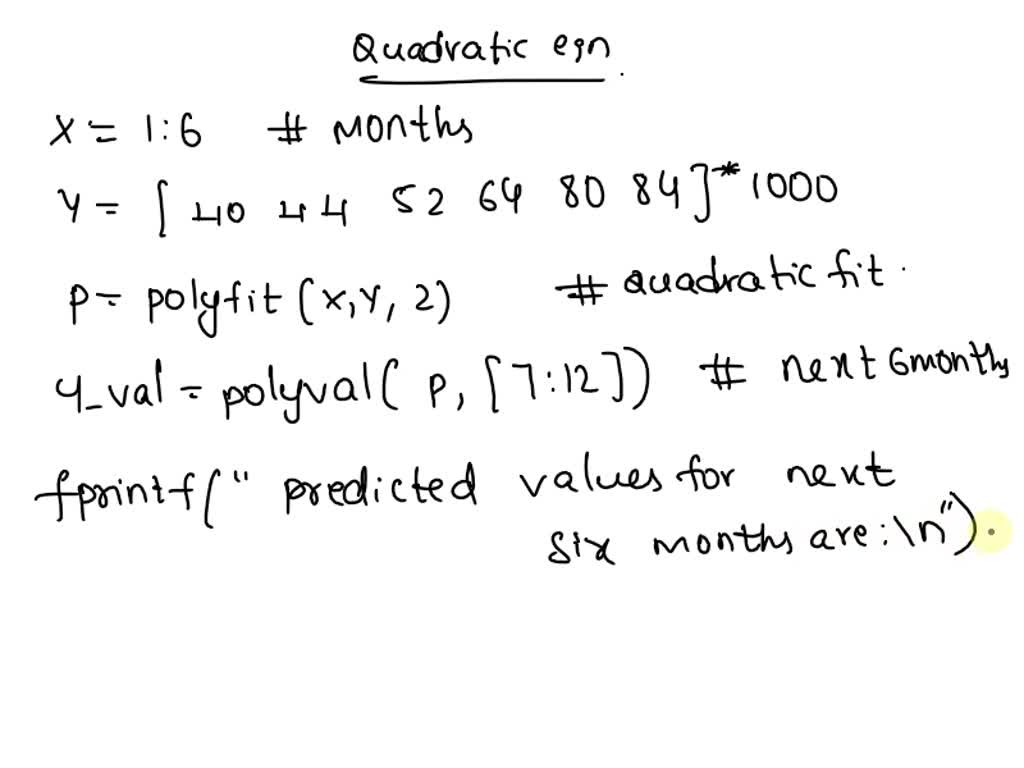 Quadratic eqn.
X = 1:6 # months
Y = [40 44 52 64 80 84]*1000
P = polyfit(X,Y,2) # Quadratic fit.
Y_val = polyval( P, [7:12]) # next 6months
fprintf(" predicted values for next
six months are:\n").